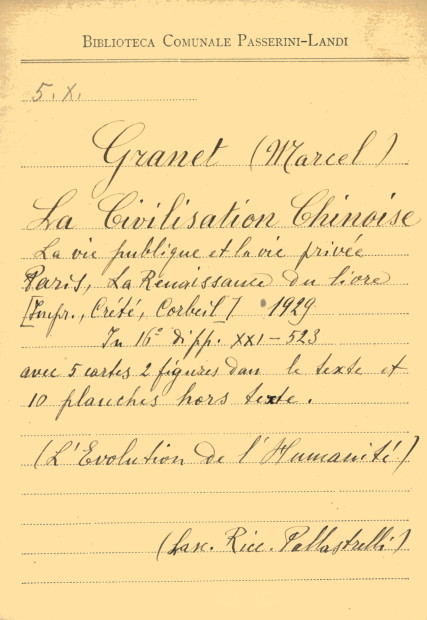 BIBLIOTECA COMUNALE PASSERINI-LANDI
5. X.
Granet (Marcel)
La Civilisation Chinoise
La vie publique et la vie privée
Paris, La Renaissance du livre
[Impr., Crété, Corbeil] 1929
In 16° di pp. XXI-523
avec 5 cartes 2 figures dan le texte et
10 planches hors texte.
(L'Evolution de l'Humanité)
(Lasc. Ricc. Pallastrelli)